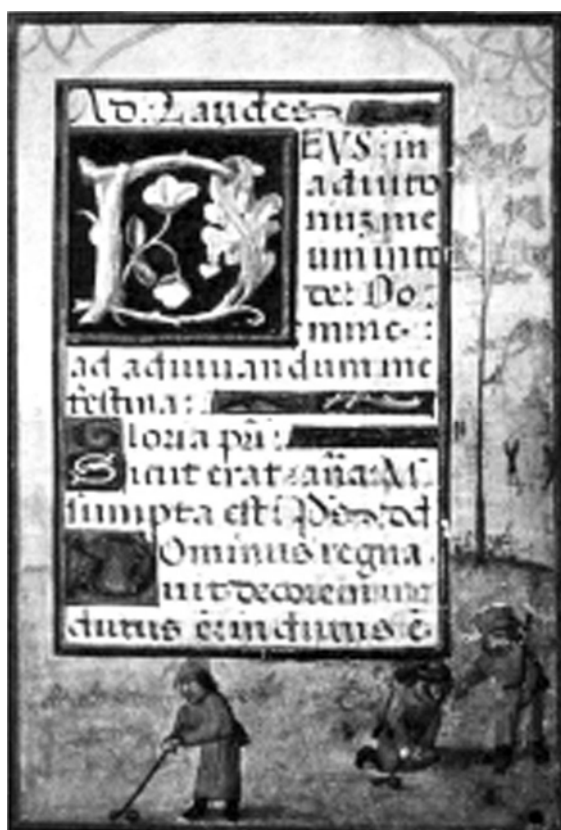 Ad. Laudes
DEVS: in
adiuto
riuz me
um inte
de: Do:
mine:
ad adiuuandum me
festina:
Gloria pri:
Sicut erat: aña: As
sumpta est: Ps
Dominus regna
uit decorem in
dutus e: indutus e